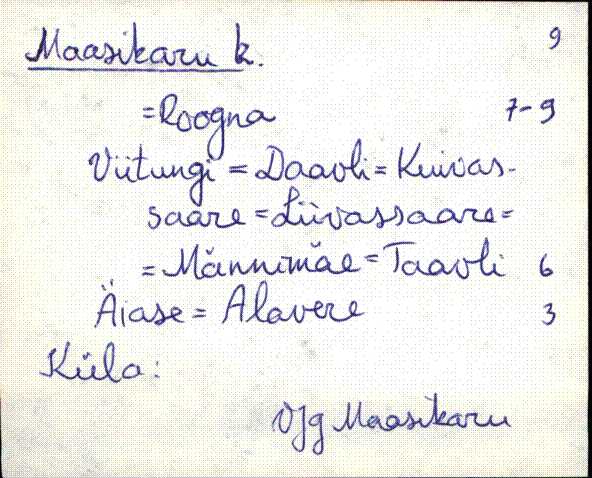 Maasikaru k. 9
=Roogna 7-9
Viitungi = Daavli = Kuivas-
saare = Liivassaare =
= Männimäe = Taavli 6
Äiase = Alavere 3
Küla:
Vjg Maasikaru